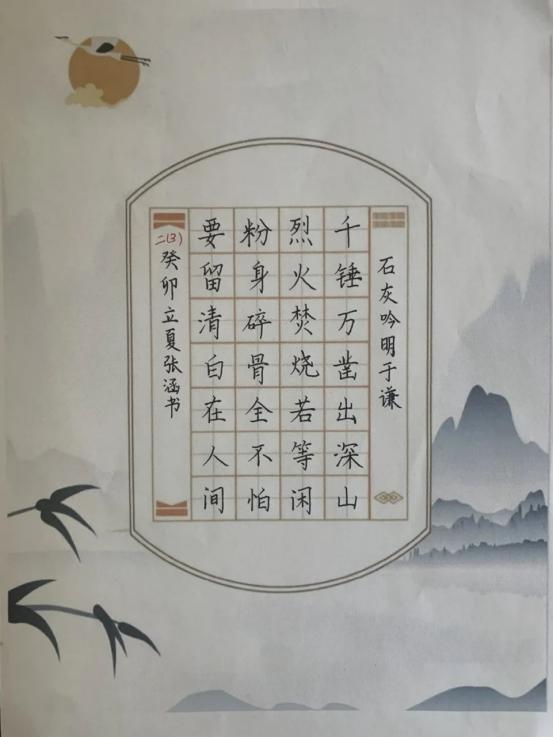 石灰吟明于谦
千锤万凿出深山
烈火焚烧若等闲
粉身碎骨全不怕
要留清白在人间
二(3)
癸卯立夏张涵书